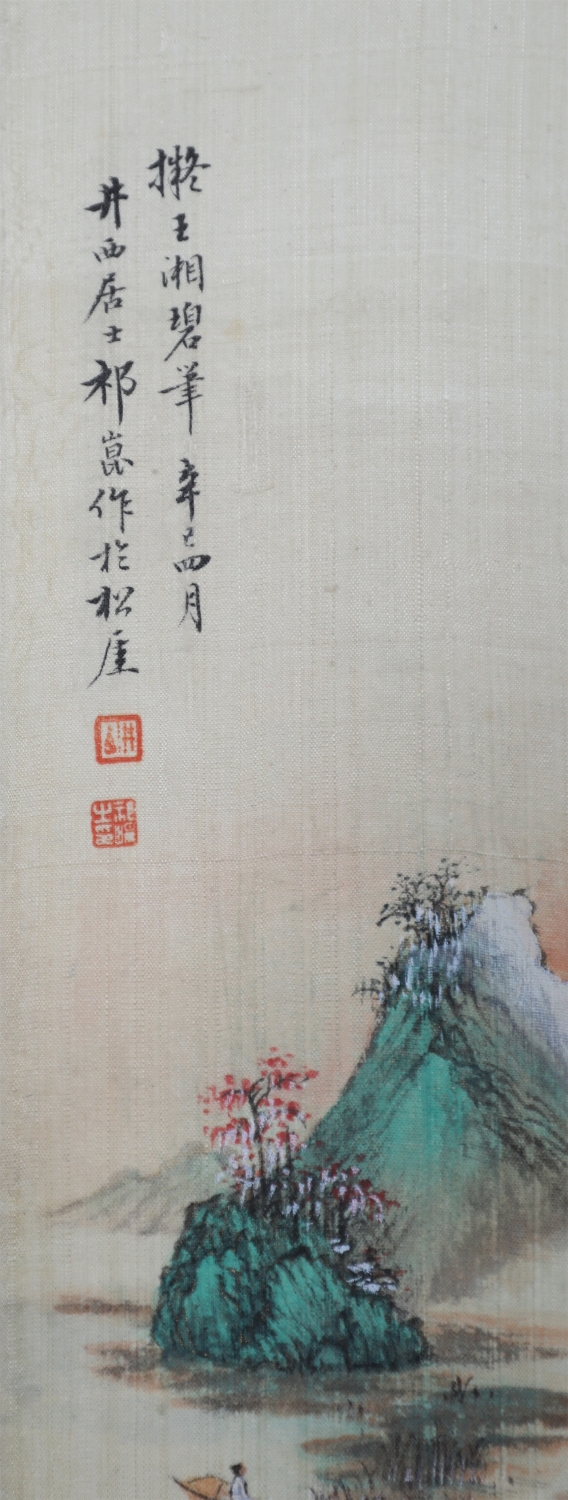 擬王湘碧筆 辛巳四月
井西居士祁崑作於松厓